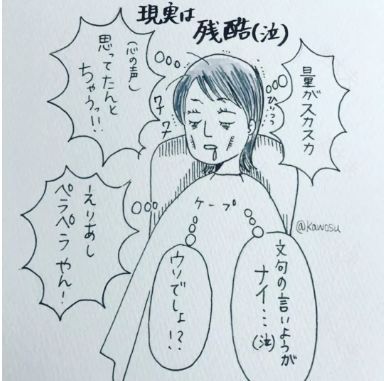 現実は
残酷(泣)
量が
スカスカ
(心の声)
思ってたんと
ちゃうっ!!
えりあし
ペラペラ
やん!
ケープ
@kawosu
文句の言いようが
ナイ…(泣)
ウソでしょ!?